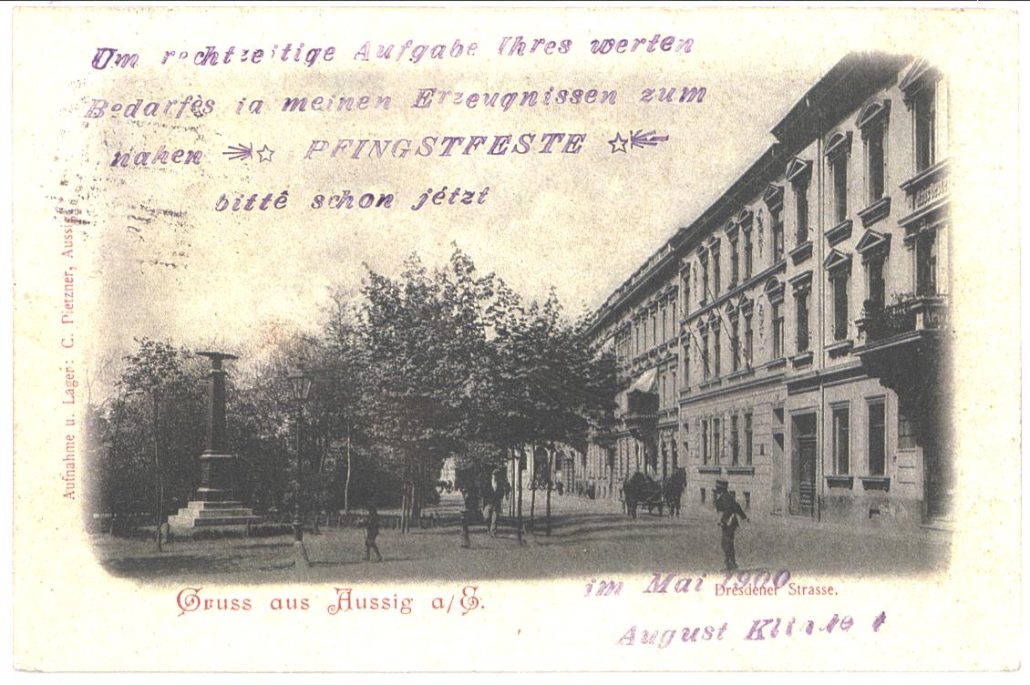 Um rechtzeitige Aufgabe Ihres werten
Bedarfes in meinen Erzeugnissen zum
nahen PFINGSTFESTE
bitte schon jetzt
Aufnahme u. Lager: C. Pietzner, Aussig
Gruss aus Aussig a/E.
im Mai 1900
Dresdener Strasse.
August